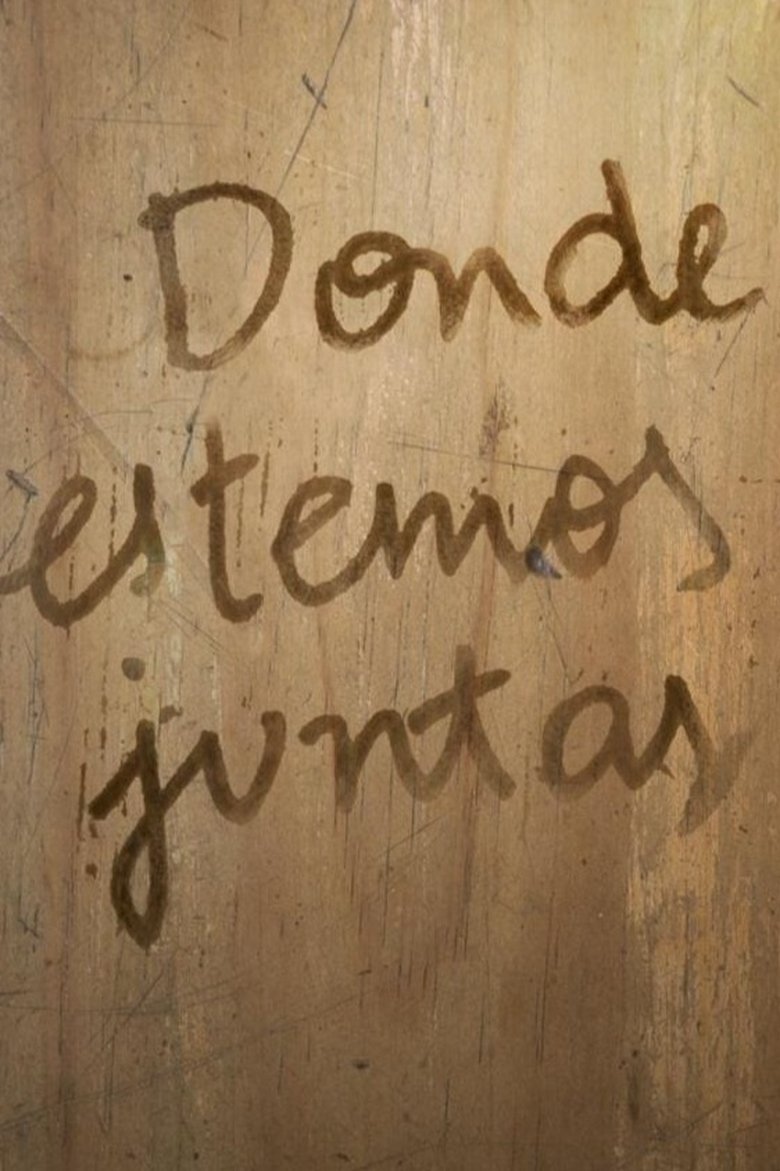 Donde
estemos
juntas